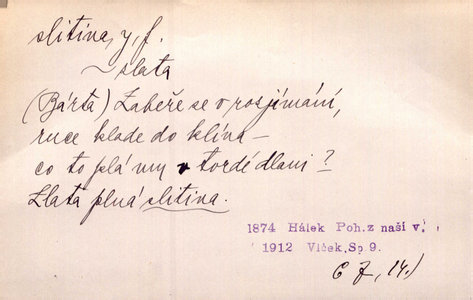 slitina, y, f.
~ zlata
(Bárta) Zabeře se v rozjímání,
ruce klade do klína –
co to plá mu v tvrdé dlani?
Zlata plná slitina.
1874 Hálek Poh. z naší v.
1912 Vlček, Sp 9.